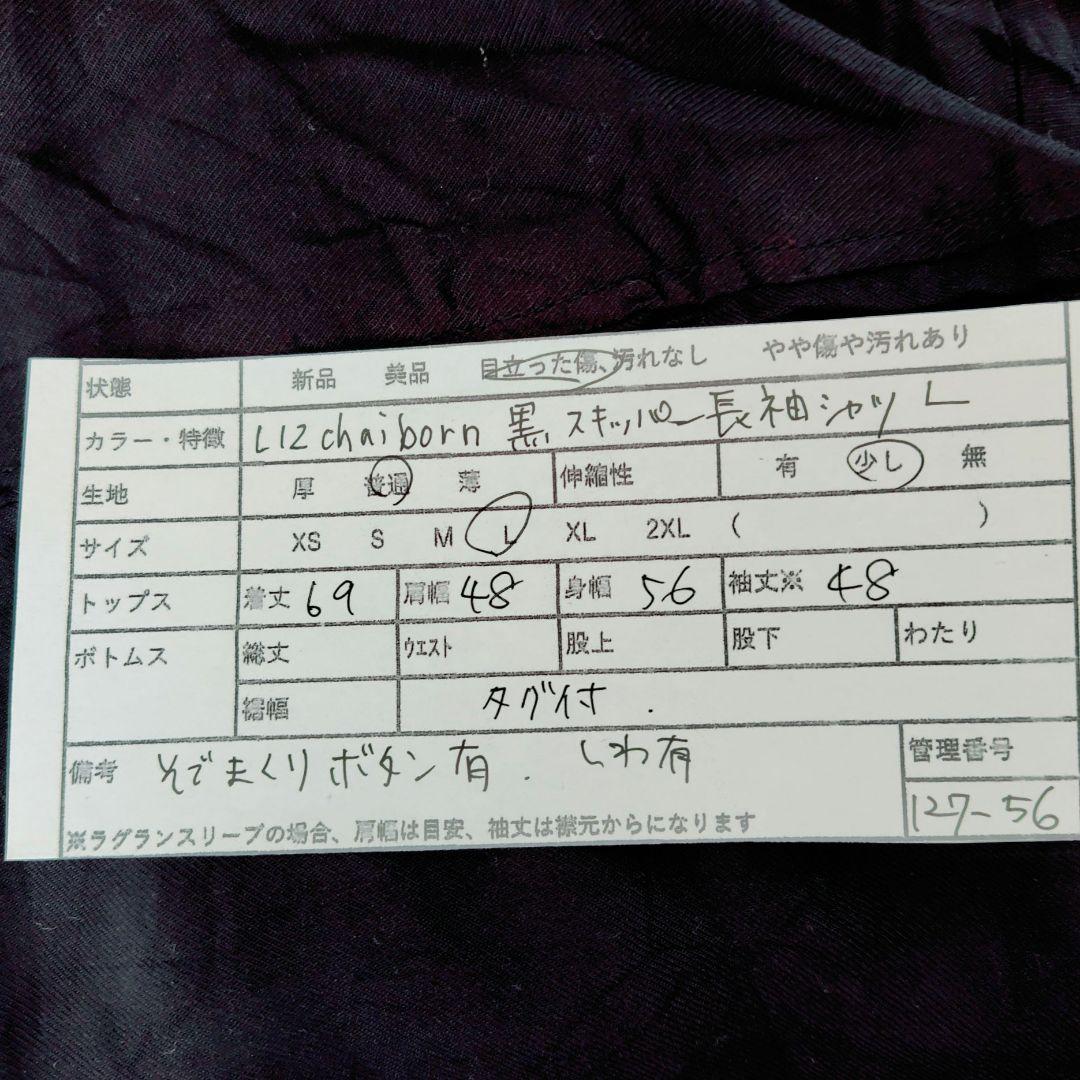 状態 新品 美品 目立った傷、汚れなし やや傷や汚れあり
カラー・特徴 LIZchaiborn 黒 スキッパー長袖シャツ L
生地 厚 普通 薄 伸縮性 有 少し 無
サイズ XS S M L XL 2XL ( )
トップス 着丈 69 肩幅 48 身幅 56 袖丈※ 48
ボトムス 総丈 ウエスト 股上 股下 わたり
裾幅 タグ付.
備考 そでまくりボタン有. しわ有 管理番号
127-56
※ラグランスリーブの場合、肩幅は目安、袖丈は襟元からになります